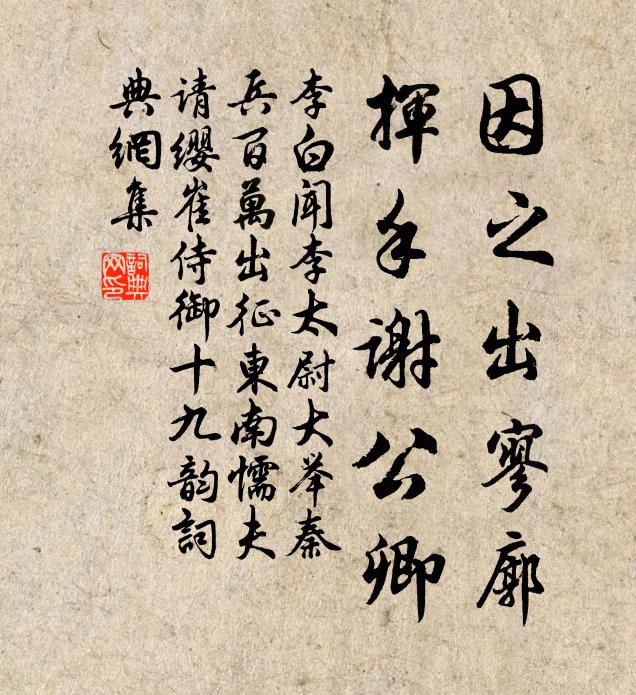 因之出寥廓
揮手謝公卿
李白闻李太尉大举秦
兵百萬出征東南懦夫
请缨崔侍御十九韵詞
典網集
詞典
网印